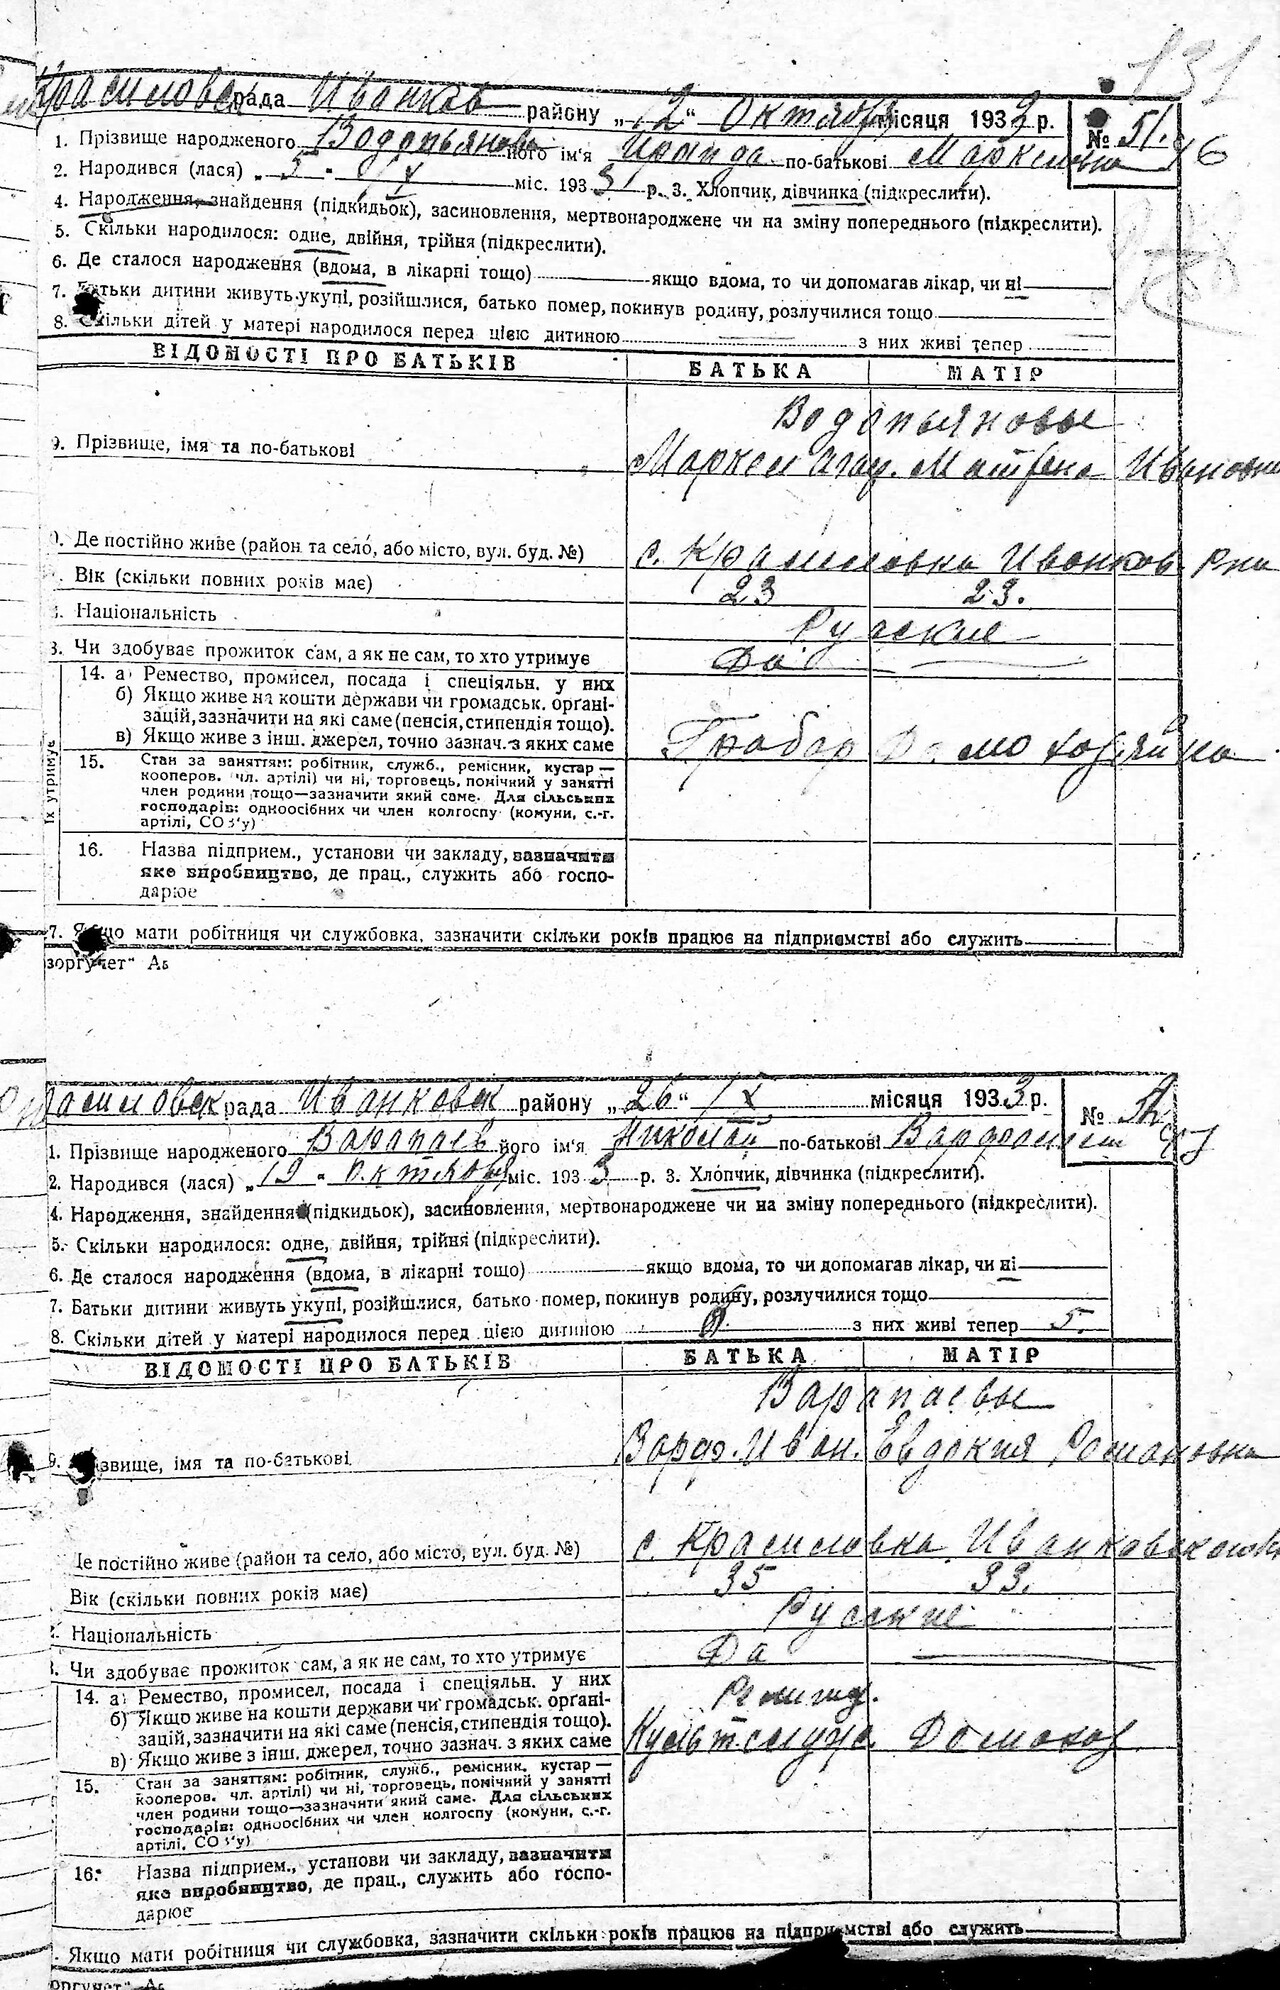 131
Красиловск рада Иванков району „12“ Октября місяця 1933 р. № 51.
1. Прізвище народженого Водопьянова його ім'я Ираида по-батькові Маркеловна 46
2. Народився (лася) „5“ IX міс. 1933 р. 3. Хлопчик, дівчинка (підкреслити).
4. Народження, знайдення (підкидьок), засиновлення, мертвонароджене чи на зміну попереднього (підкреслити).
5. Скільки народилося: одне, двійня, трійня (підкреслити).
6. Де сталося народження (вдома, в лікарні тощо) якщо вдома, то чи допомагав лікар, чи ні
7. Батьки дитини живуть укупі, розійшлися, батько помер, покинув родину, розлучилися тощо
8. Скільки дітей у матері народилося перед цією дитиною з них живі тепер
ВІДОМОСТІ ПРО БАТЬКІВ БАТЬКА МАТІР
Водопьяновы
9. Прізвище, імя та по-батькові Маркел Матрена Ивановна
0. Де постійно живе (район та село, або місто, вул. буд. №) с. Красиловка Иванков. Рна
Вік (скільки повних років має) 23 23.
Національність Русские
3. Чи здобуває прожиток сам, а як не сам, то хто утримує Да
14. а) Ремество, промисел, посада і спеціяльн. у них
б) Якщо живе на кошти держави чи громадськ. органі-
зацій, зазначити на які саме (пенсія, стипендія тощо).
в) Якщо живе з інш. джерел, точно зазнач. з яких саме Грабар Домохозяйка
їх утримує
15. Стан за заняттям: робітник, служб., ремісник, кустар —
кооперов. чл. артілі) чи ні, торговець, помічний у занятті
член родини тощо—зазначити який саме. Для сільських
господарів: одноосібних чи член колгоспу (комуни, с.-г.
артілі, СОЗ'у)
16. Назва підприєм., установи чи закладу, зазначити
яке виробництво, де прац., служить або госпо-
дарює
7. Якщо мати робітниця чи службовка, зазначити скільки років працює на підприємстві або служить
зоргучет“ Аб
Красиловск рада Иванковск району „26“ IX місяця 1933 р. №
1. Прізвище народженого Варапаев його ім'я Николай по-батькові 47
2. Народився (лася) „19“ Октября міс. 1933 р. 3. Хлопчик, дівчинка (підкреслити).
4. Народження, знайдення (підкидьок), засиновлення, мертвонароджене чи на зміну попереднього (підкреслити).
5. Скільки народилося: одне, двійня, трійня (підкреслити).
6. Де сталося народження (вдома, в лікарні тощо) якщо вдома, то чи допомагав лікар, чи ні
7. Батьки дитини живуть укупі, розійшлися, батько помер, покинув родину, розлучилися тощо
8. Скільки дітей у матері народилося перед цією дитиною з них живі тепер 5.
ВІДОМОСТІ ПРО БАТЬКІВ БАТЬКА МАТІР
Варапаевы
9. Прізвище, імя та по-батькові Варф. Иван. Евдокия Романовна
Де постійно живе (район та село, або місто, вул. буд. №) с. Красиловка Иванковского
Вік (скільки повних років має) 35 33.
Національність Русские
Чи здобуває прожиток сам, а як не сам, то хто утримує Да
14. а) Ремество, промисел, посада і спеціяльн. у них
б) Якщо живе на кошти держави чи громадськ. органі-
зацій, зазначити на які саме (пенсія, стипендія тощо).
в) Якщо живе з інш. джерел, точно зазнач. з яких саме Домохоз
15. Стан за заняттям: робітник, служб., ремісник, кустар —
кооперов. чл. артілі) чи ні, торговець, помічний у занятті
член родини тощо—зазначити який саме. Для сільських
господарів: одноосібних чи член колгоспу (комуни, с.-г.
артілі, СОЗ'у)
16. Назва підприєм., установи чи закладу, зазначити
яке виробництво, де прац., служить або госпо-
дарює
Якщо мати робітниця чи службовка, зазначити скільки років працює на підприємстві або служить
оргучет“ Аб